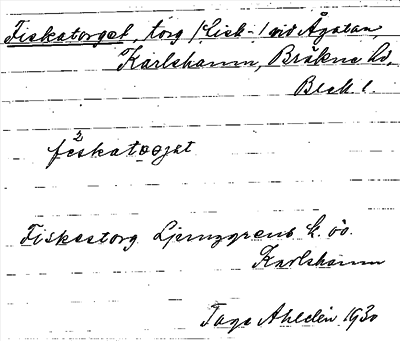 Fiskatorget, torg (Fisk-) vid Ågatan,
Karlshamn, Bräkne hd,
Blek. l.
2
feskatoɷjət
Fiskestorg Ljunggrens k. öv.
Karlshamn
Tage Ahldén 1930